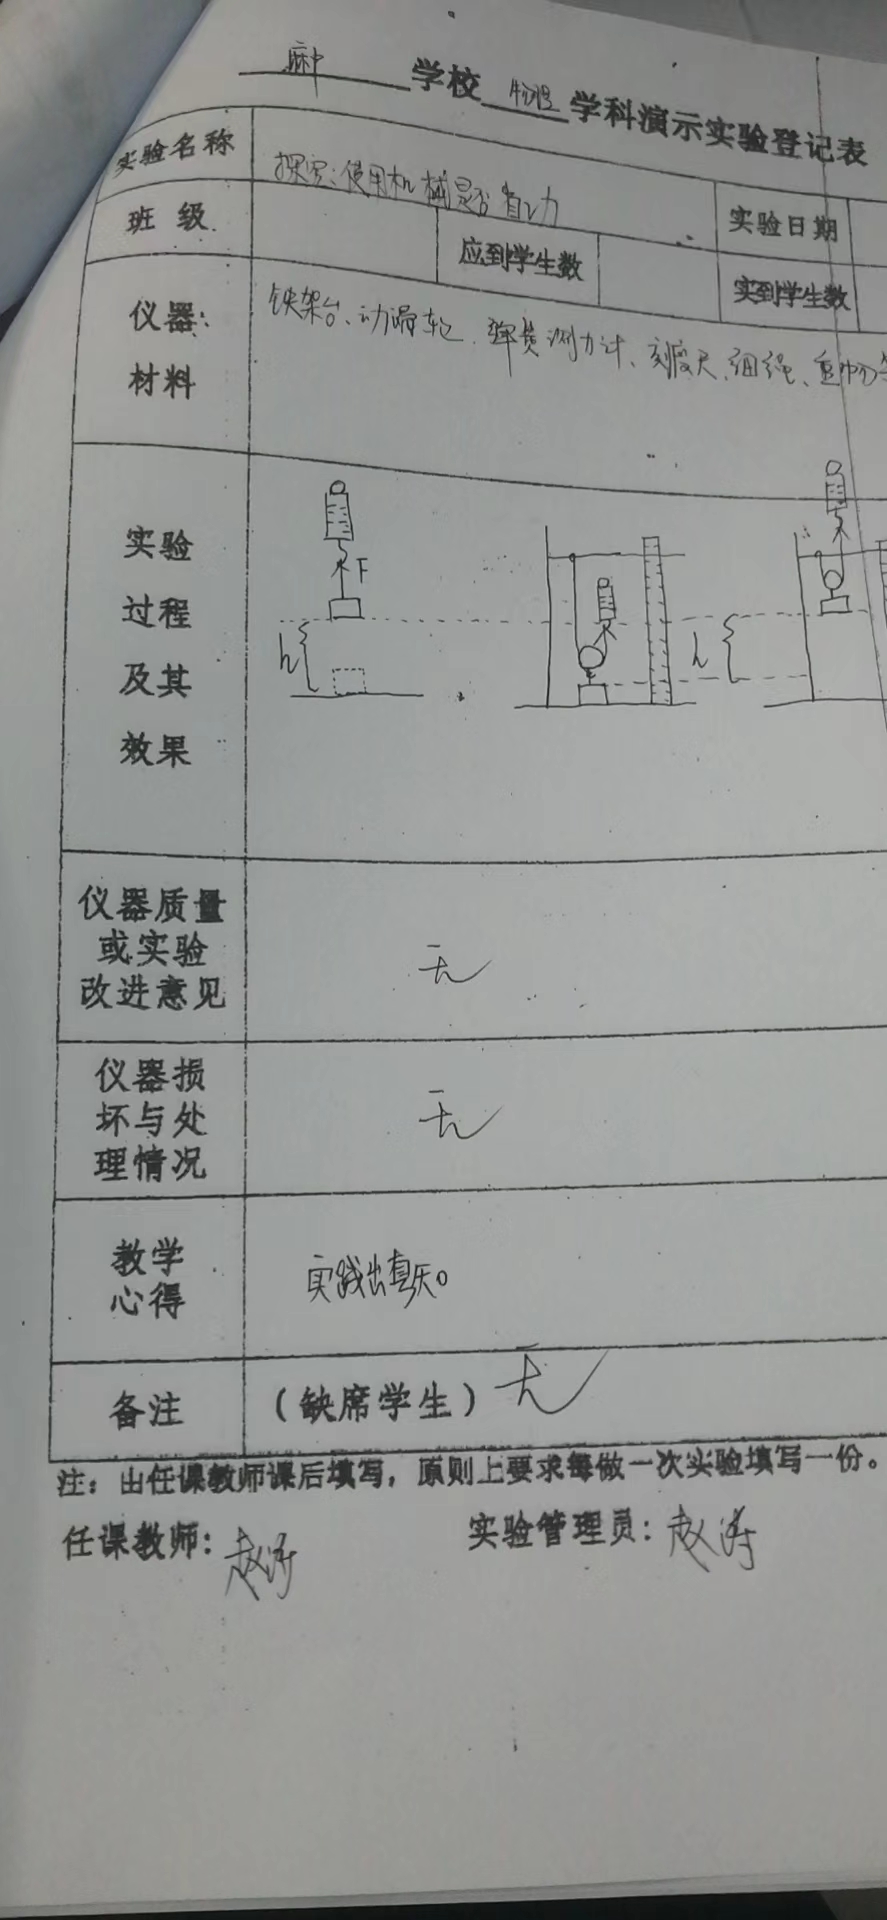 麻中 学校 物理 学科演示实验登记表
实验名称 探究:使用机械是否省力 实验日期
班级 应到学生数 实到学生数
仪器: 铁架台、动滑轮、弹簧测力计、刻度尺、细绳、重物等
材料
实验
过程
及其
效果
F
h
h
仪器质量
或实验
改进意见
无
仪器损
坏与处
理情况
无
教学
心得
实践出真知。
备注 (缺席学生) 无
注:由任课教师课后填写,原则上要求每做一次实验填写一份。
任课教师:赵涛 实验管理员:赵涛